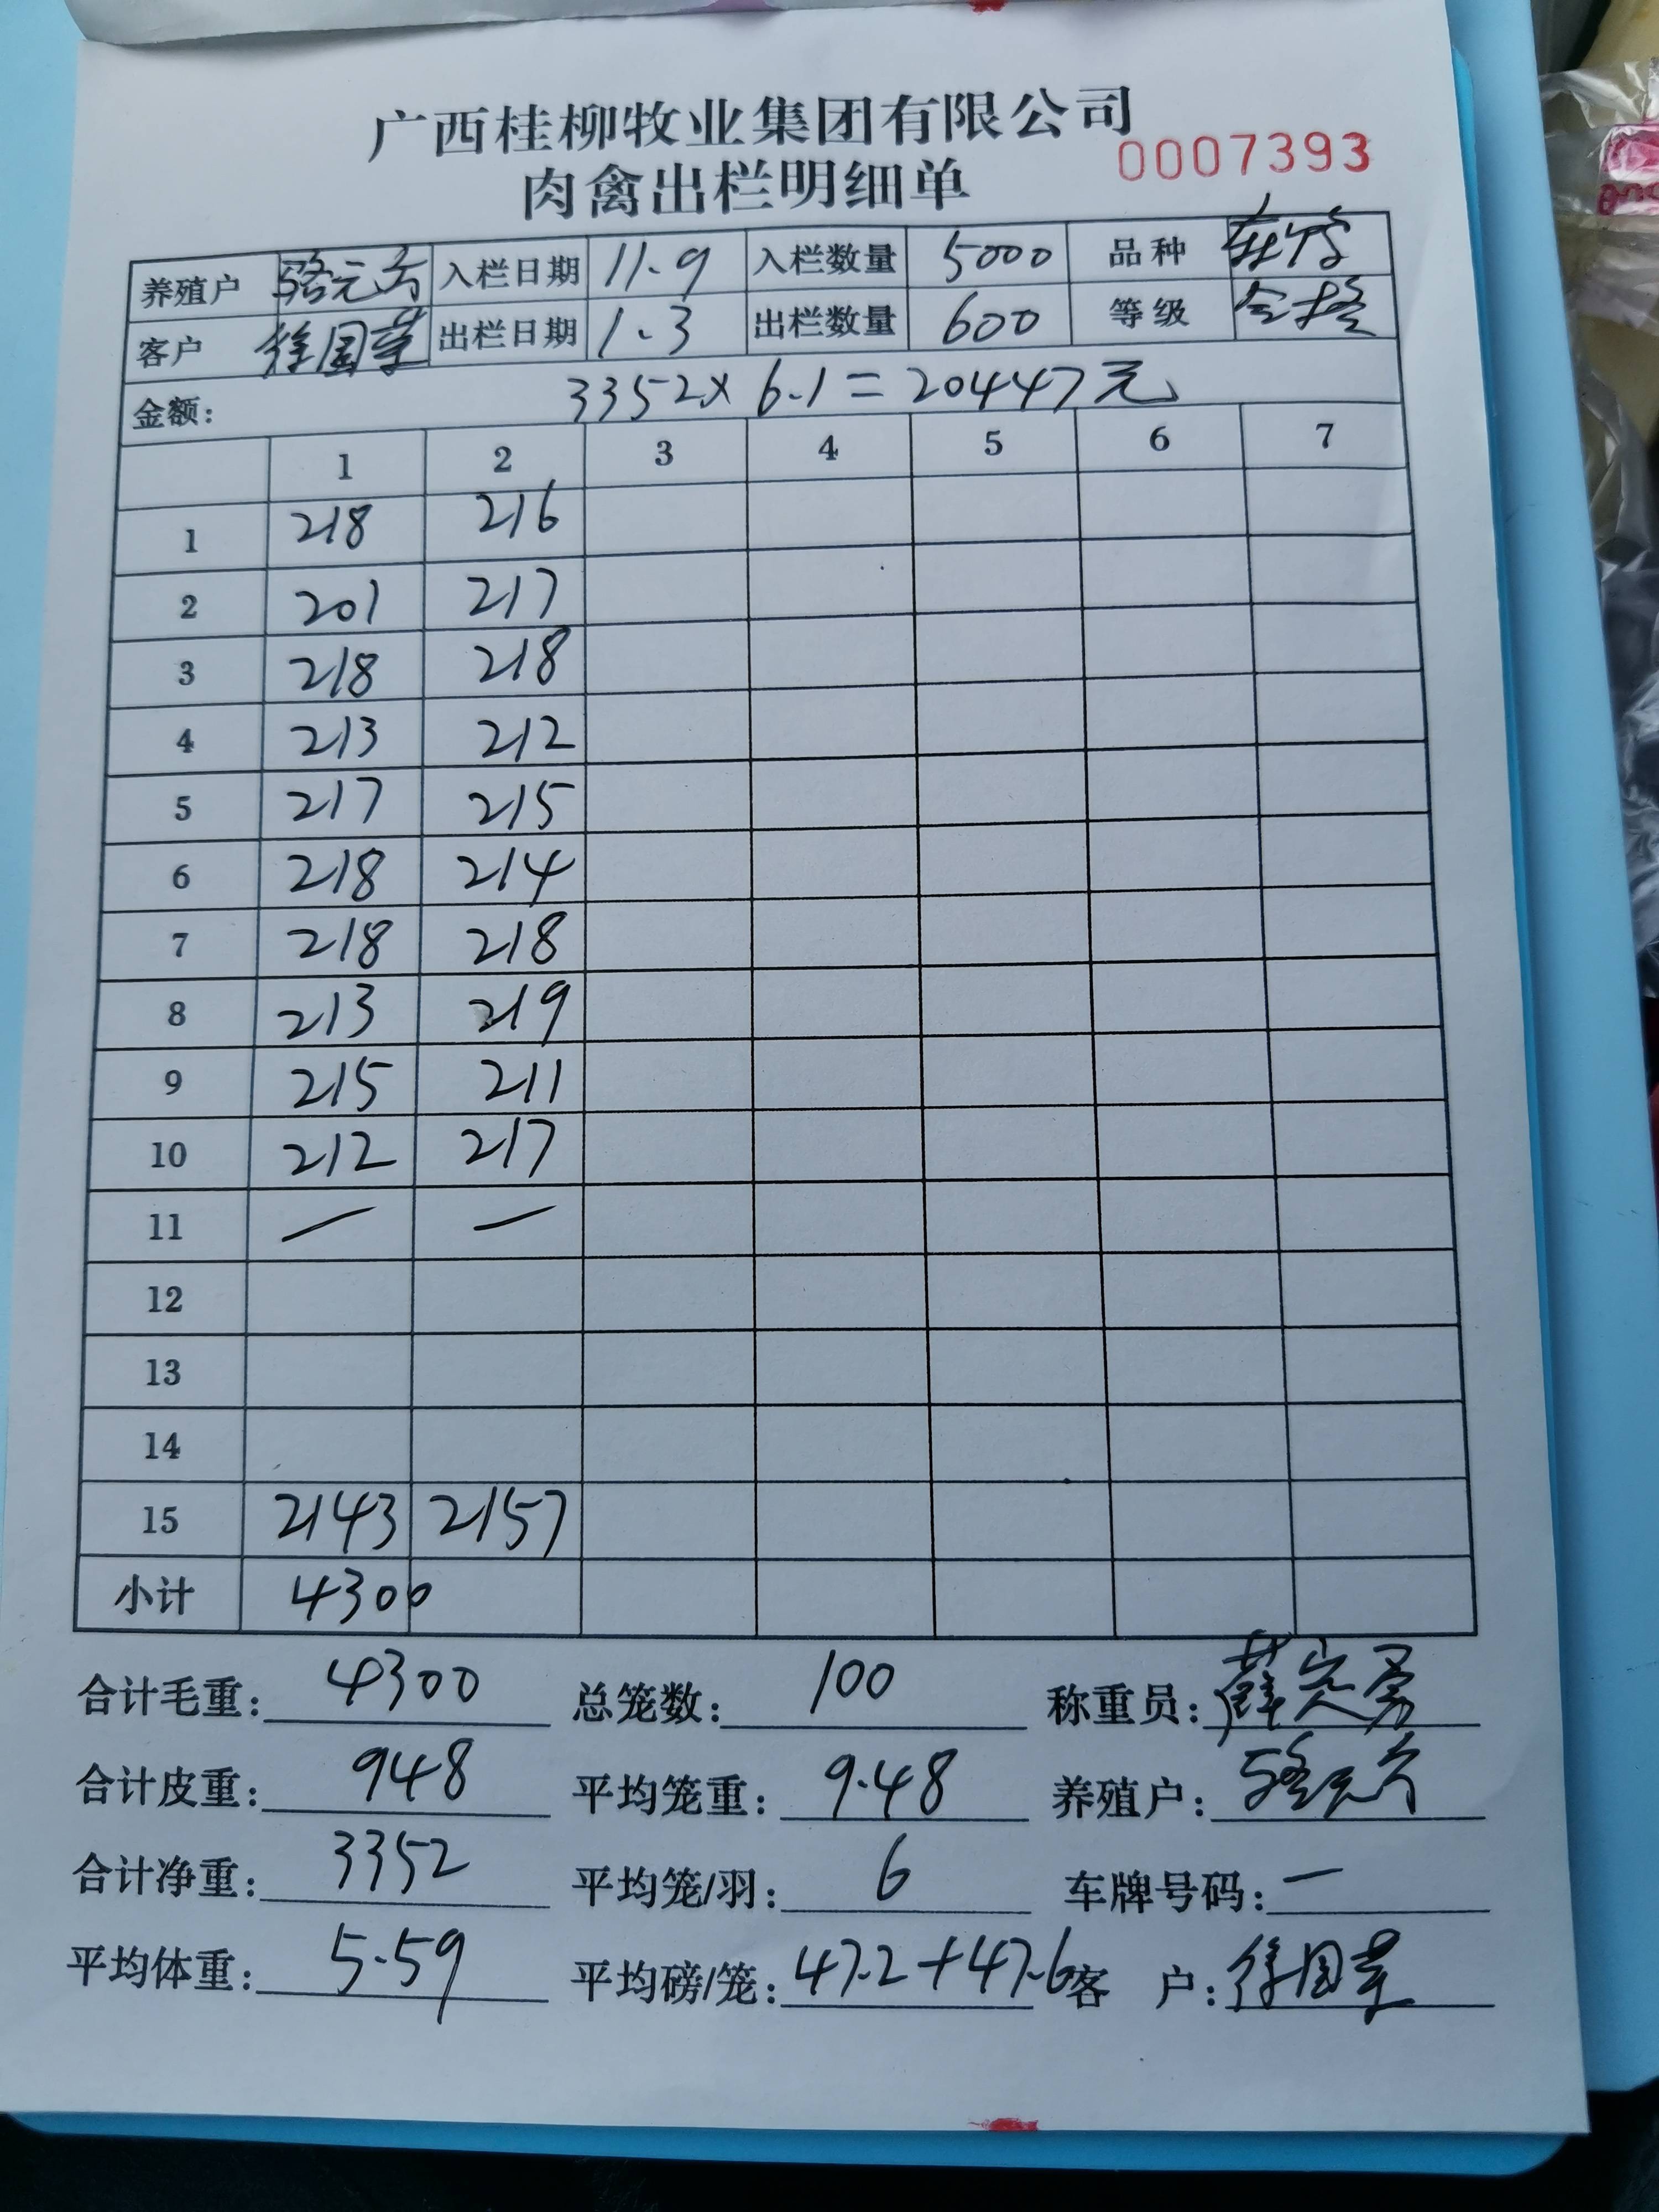 广西桂柳牧业集团有限公司
肉禽出栏明细单 0007393
养殖户 骆元 入栏日期 11.9 入栏数量 5000 品种
客户 徐国 出栏日期 1.3 出栏数量 600 等级
金额: 3352×6.1=20447元
1 2 3 4 5 6 7
1 218 216
2 201 217
3 218 218
4 213 212
5 217 215
6 218 214
7 218 218
8 213 219
9 215 211
10 212 217
11 — —
12
13
14
15 2143 2157
小计 4300
合计毛重: 4300 总笼数: 100 称重员: 薛
合计皮重: 948 平均笼重: 9.48 养殖户: 骆元
合计净重: 3352 平均笼/羽: 6 车牌号码: —
平均体重: 5.59 平均磅/笼: 47.2+47.6 客 户: 徐国